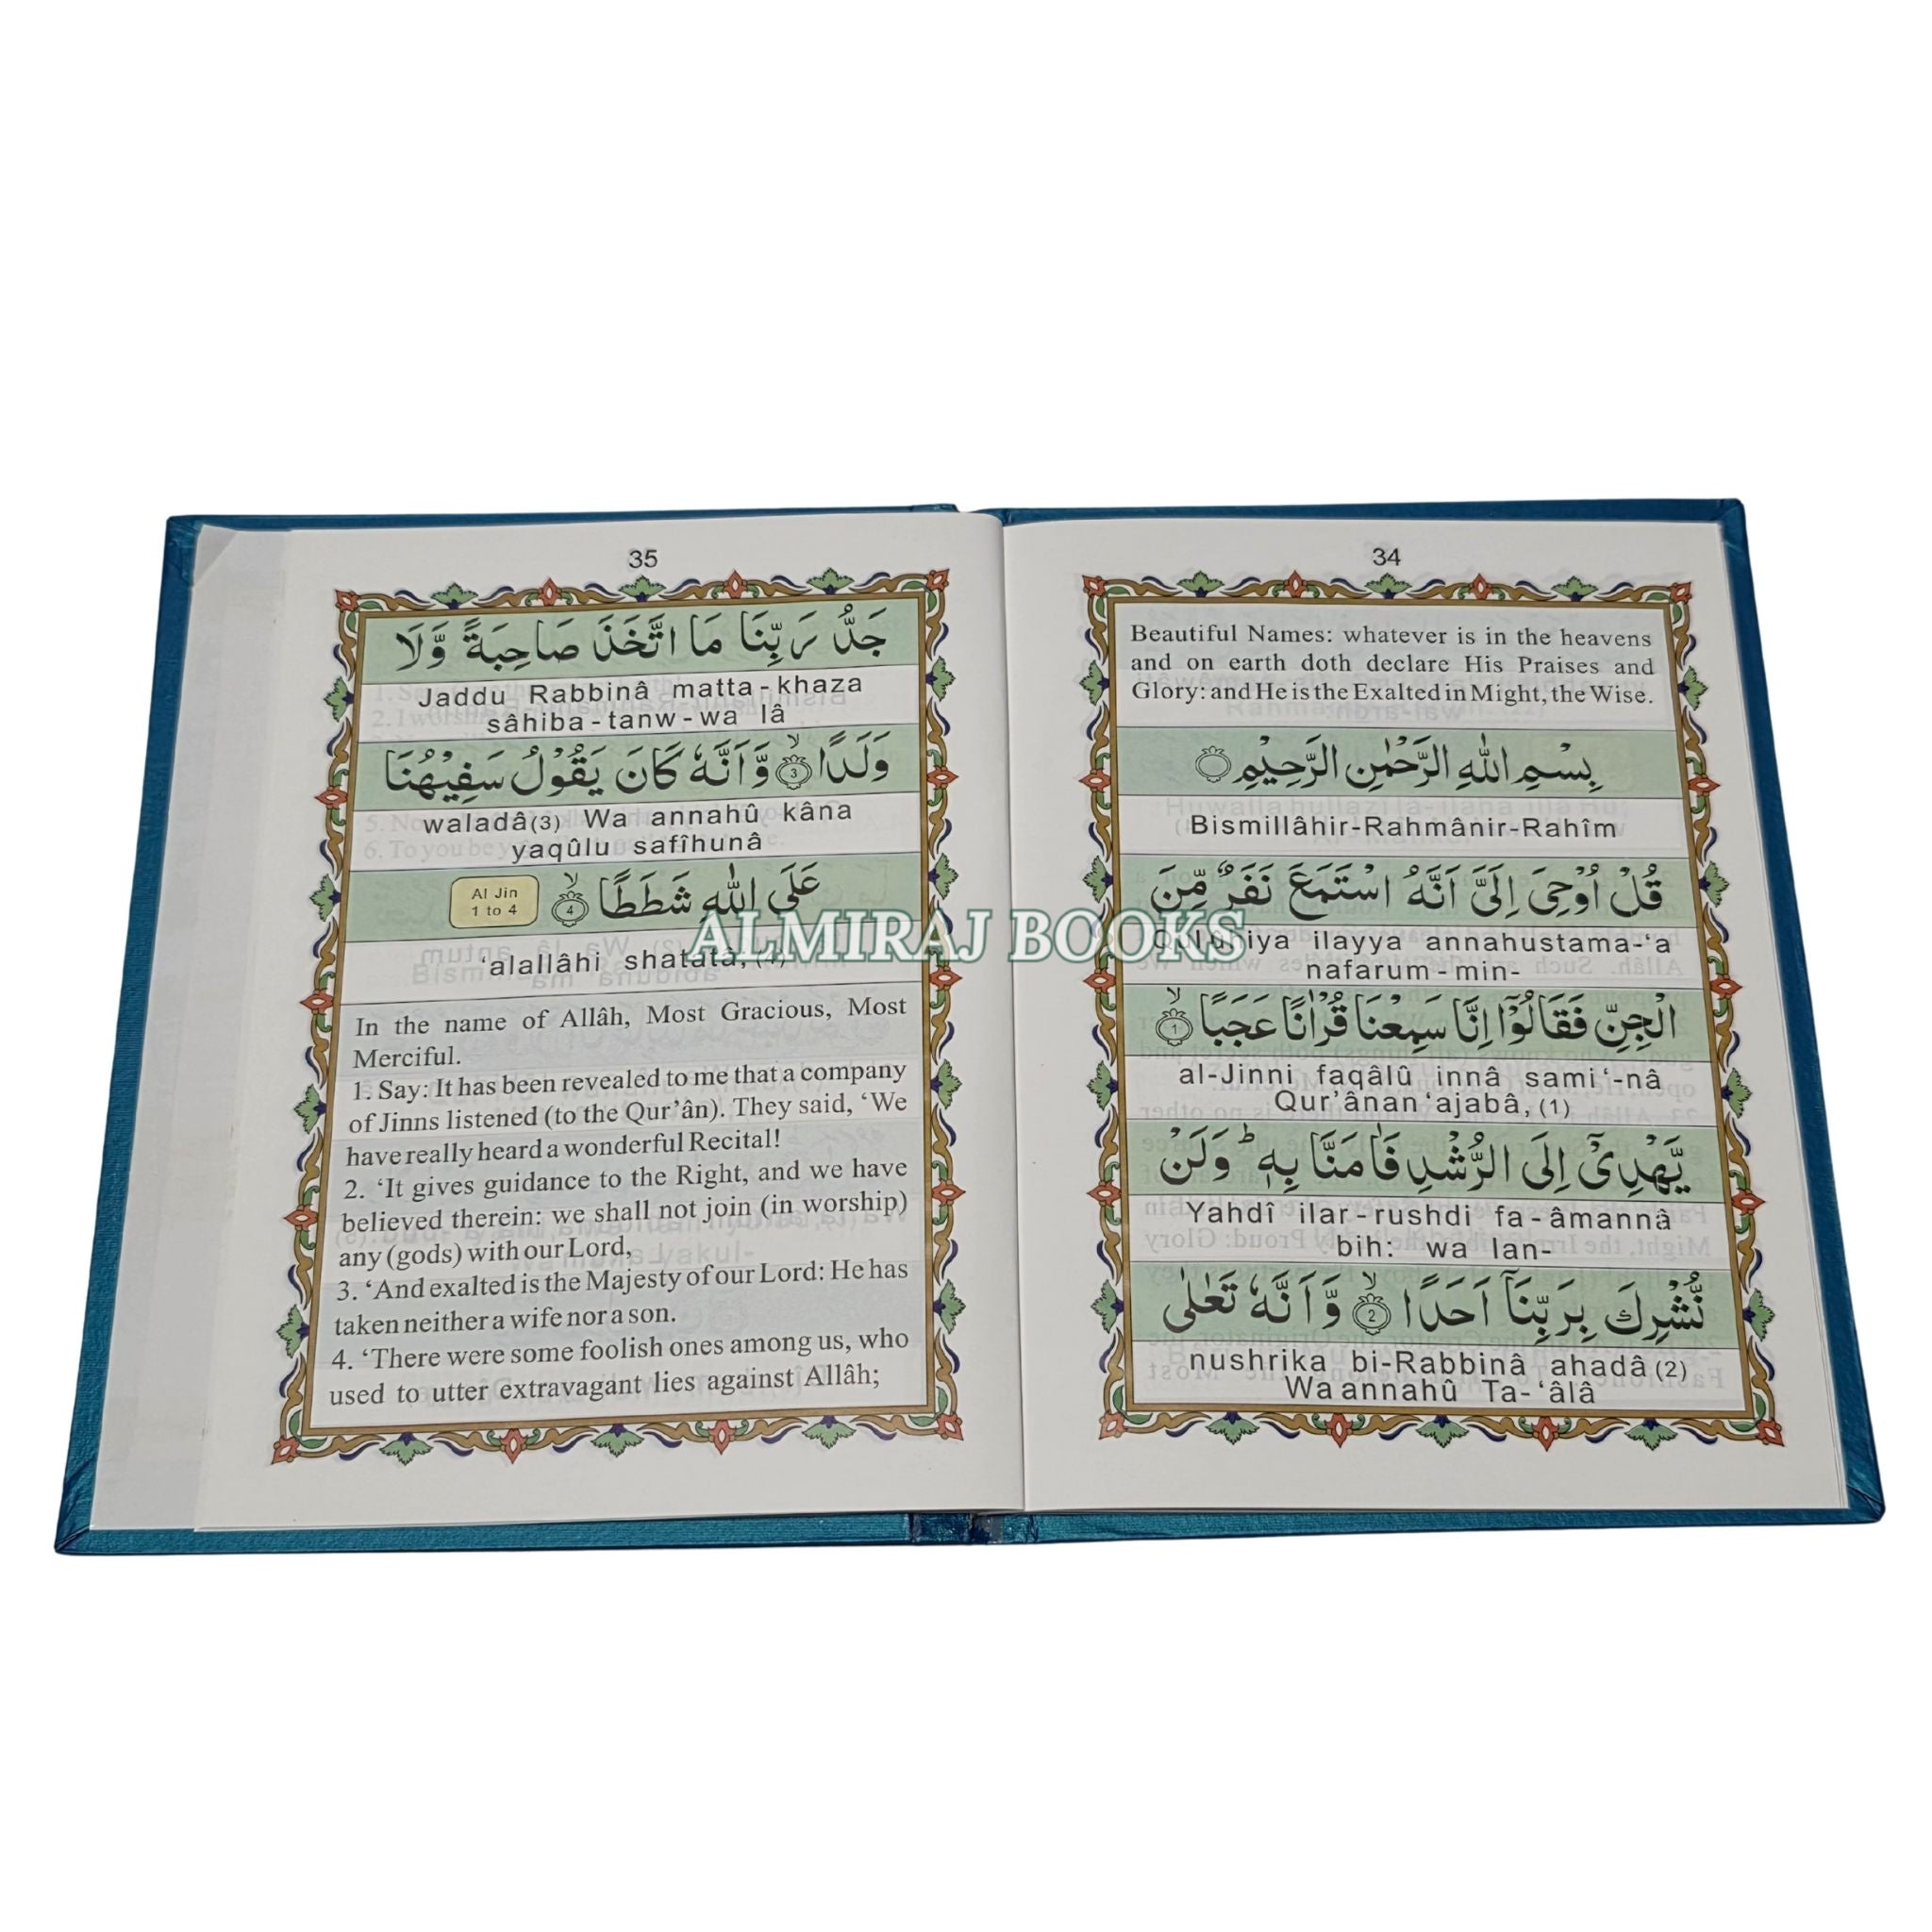 34
Beautiful Names: whatever is in the heavens
and on earth doth declare His Praises and
Glory: and He is the Exalted in Might, the Wise.
بِسْمِ اللّٰهِ الرَّحْمٰنِ الرَّحِيْمِ
Bismillâhir-Rahmânir-Rahîm
قُلْ اُوْحِیَ اِلَیَّ اَنَّهُ اسْتَمَعَ نَفَرٌ مِّنَ
ilayya annahustama-‘a
nafarum-min-
الْجِنِّ فَقَالُوْۤا اِنَّا سَمِعْنَا قُرْاٰنًا عَجَبًا ۙ 1
al-Jinni faqâlû innâ sami‘-nâ
Qur’ânan ‘ajabâ, (1)
يَّهْدِیْۤ اِلَی الرُّشْدِ فَاٰمَنَّا بِهٖ ؕ وَلَنْ
Yahdî ilar-rushdi fa-âmannâ
bih: wa lan-
نُّشْرِكَ بِرَبِّنَاۤ اَحَدًا ۙ 2 وَّاَنَّهٗ تَعٰلٰی
nushrika bi-Rabbinâ ahadâ (2)
Wa annahû Ta-‘âlâ
35
جَدُّ رَبِّنَا مَا اتَّخَذَ صَاحِبَةً وَّلَا
Jaddu Rabbinâ matta-khaza
sâhiba-tanw-wa lâ
وَلَدًا ۙ 3 وَّاَنَّهٗ كَانَ يَقُوْلُ سَفِيْهُنَا
waladâ(3) Wa annahû kâna
yaqûlu safîhunâ
عَلَی اللّٰهِ شَطَطًا ۙ 4
Al Jin
1 to 4
‘alallâhi shatatâ, (4)
In the name of Allâh, Most Gracious, Most
Merciful.
1. Say: It has been revealed to me that a company
of Jinns listened (to the Qur’ân). They said, ‘We
have really heard a wonderful Recital!
2. ‘It gives guidance to the Right, and we have
believed therein: we shall not join (in worship)
any (gods) with our Lord,
3. ‘And exalted is the Majesty of our Lord: He has
taken neither a wife nor a son.
4. ‘There were some foolish ones among us, who
used to utter extravagant lies against Allâh;
ALMIRAJ BOOKS